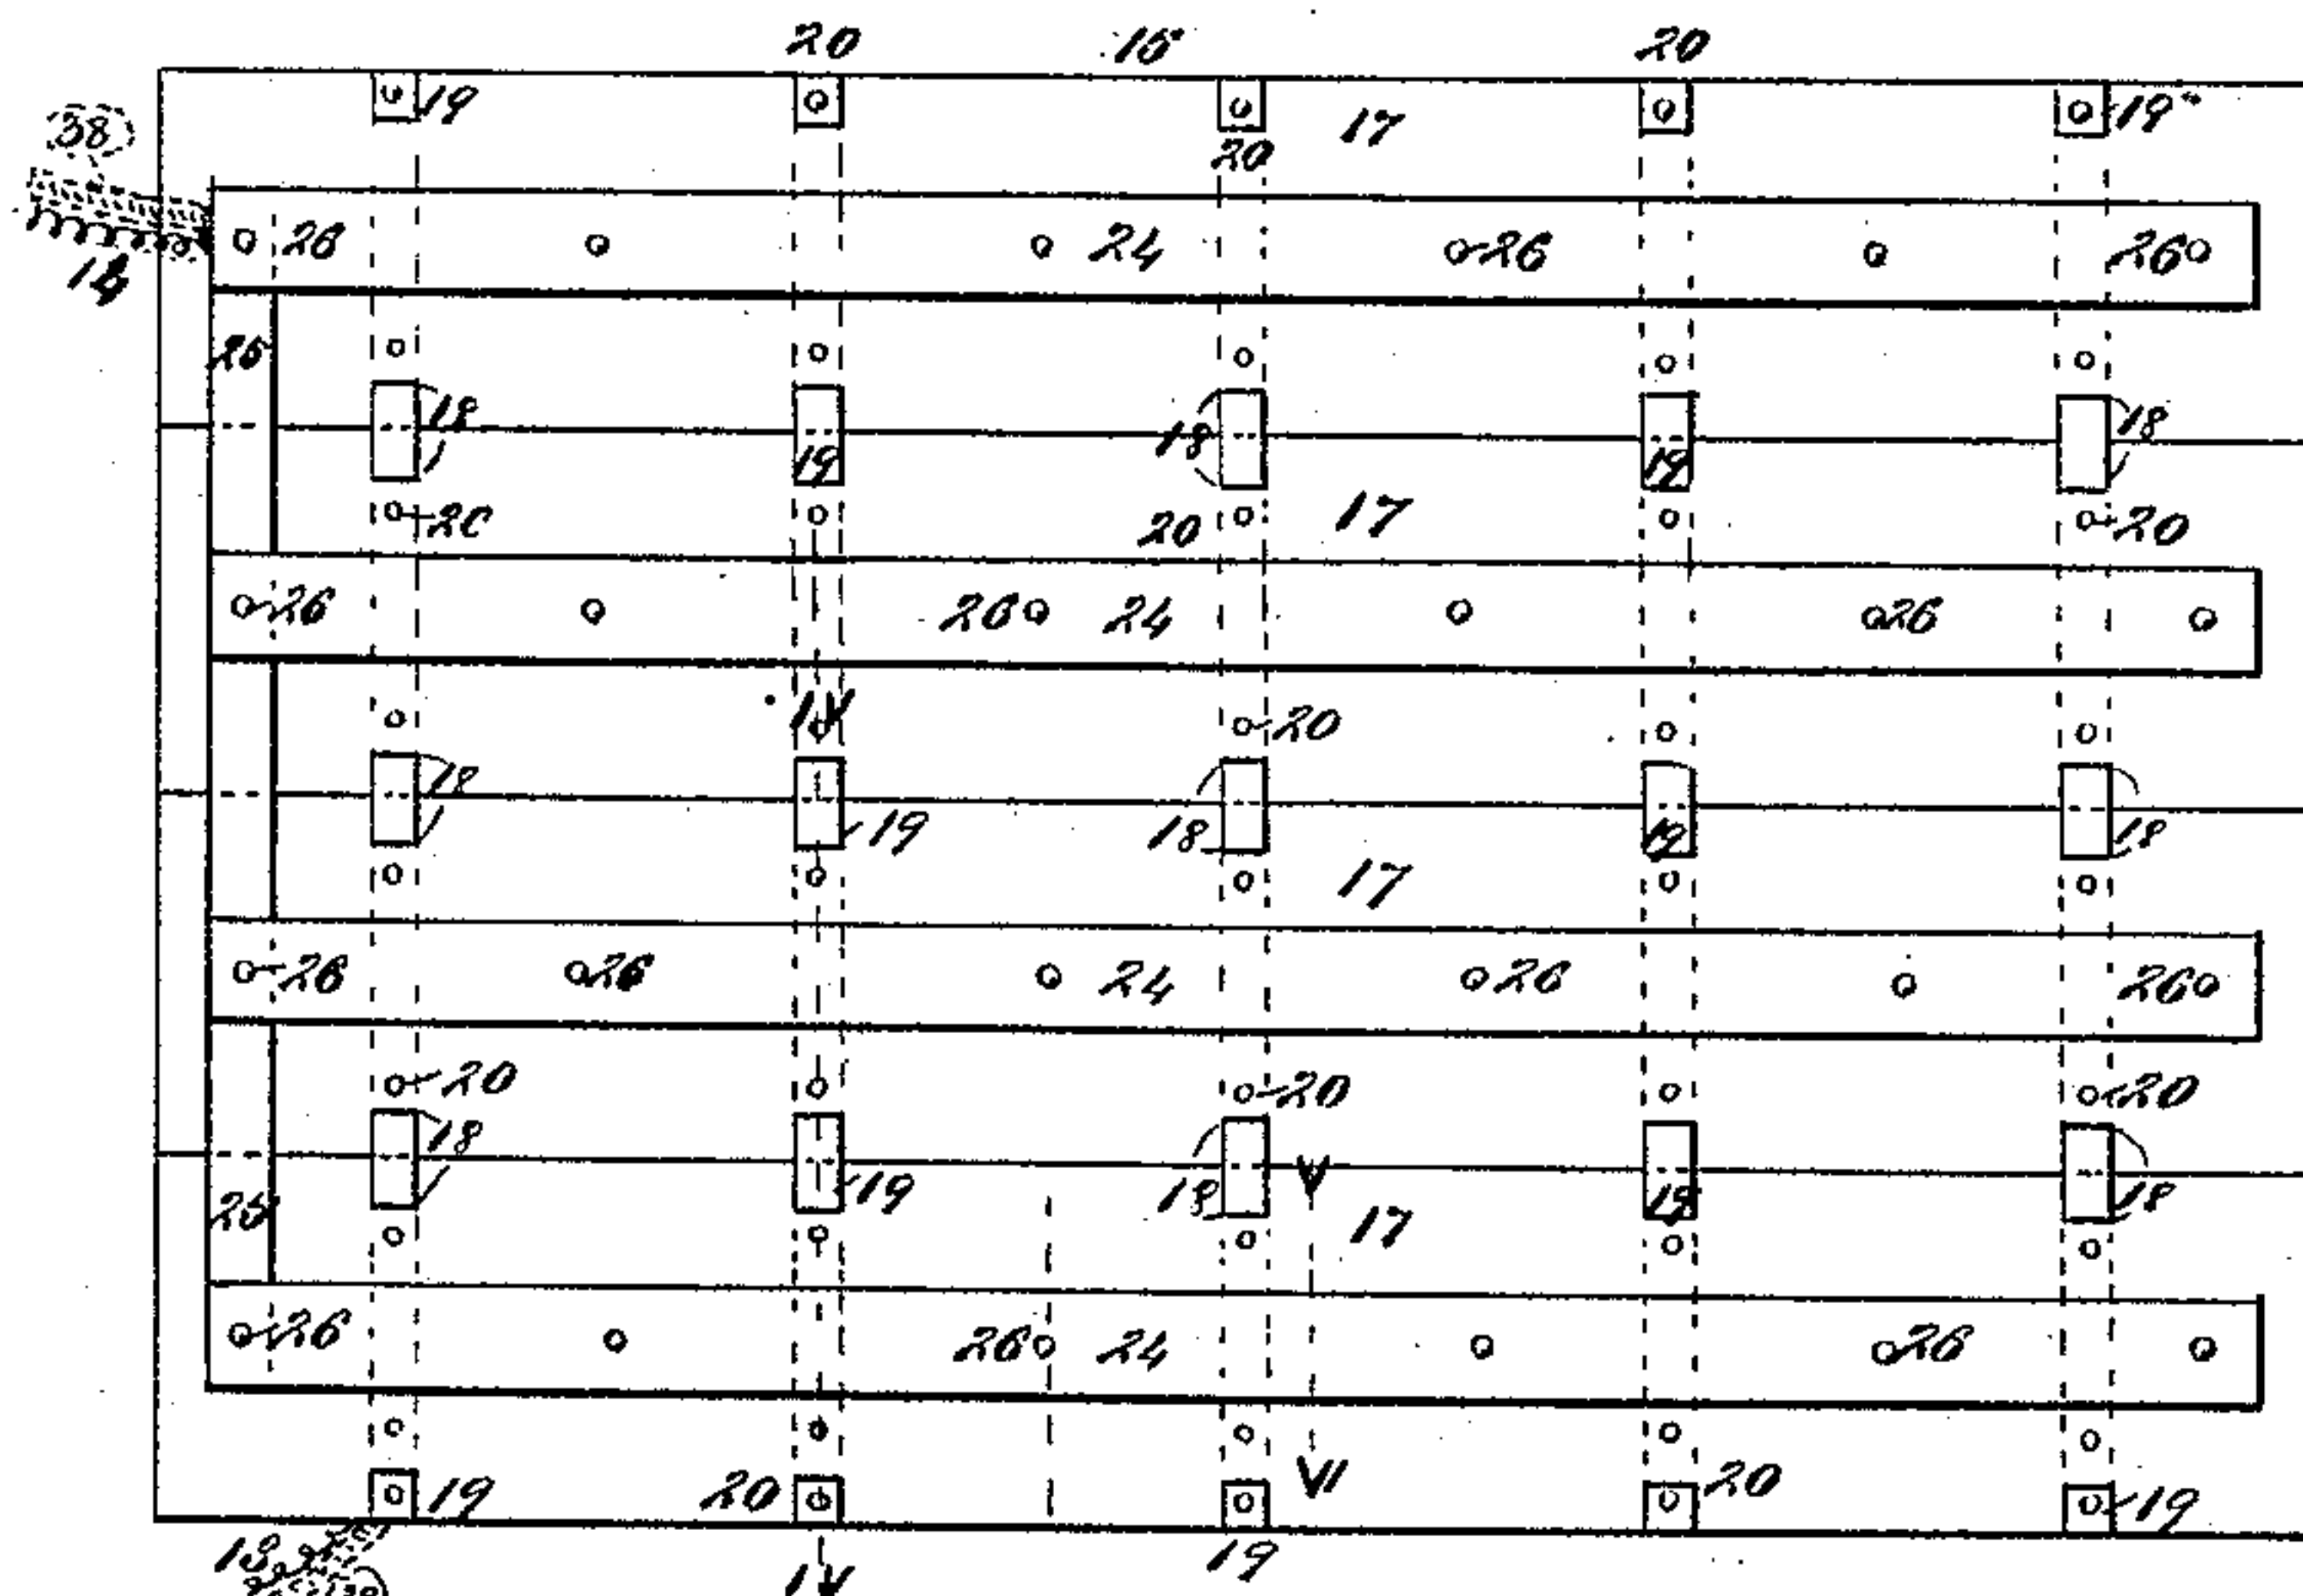 20 15 20
38 19 17 19
20
14 26 24 26 26
25
18 18 19 18 19 18
20 20 17 20
26 26 24 26
IV 20
18 19 18 19 18
17
26 26 24 26 26
20 20 20
18 19 18 V 19 18
25 17
26 26 24 26
19 20 VI 20 19
13 19
IV